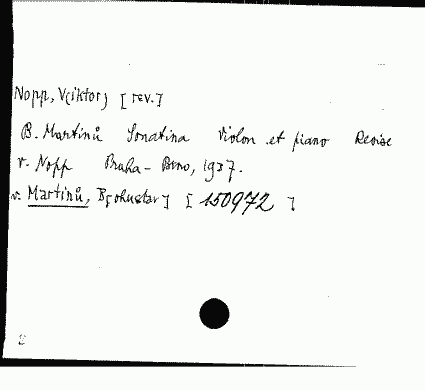 Nopp, V(iktor) [rev.]
B. Martinů Sonatina Violon et piano Revise
v. Nopp Praha - Brno, 1937.
v. Martinů, B[ohuslav] [150972]